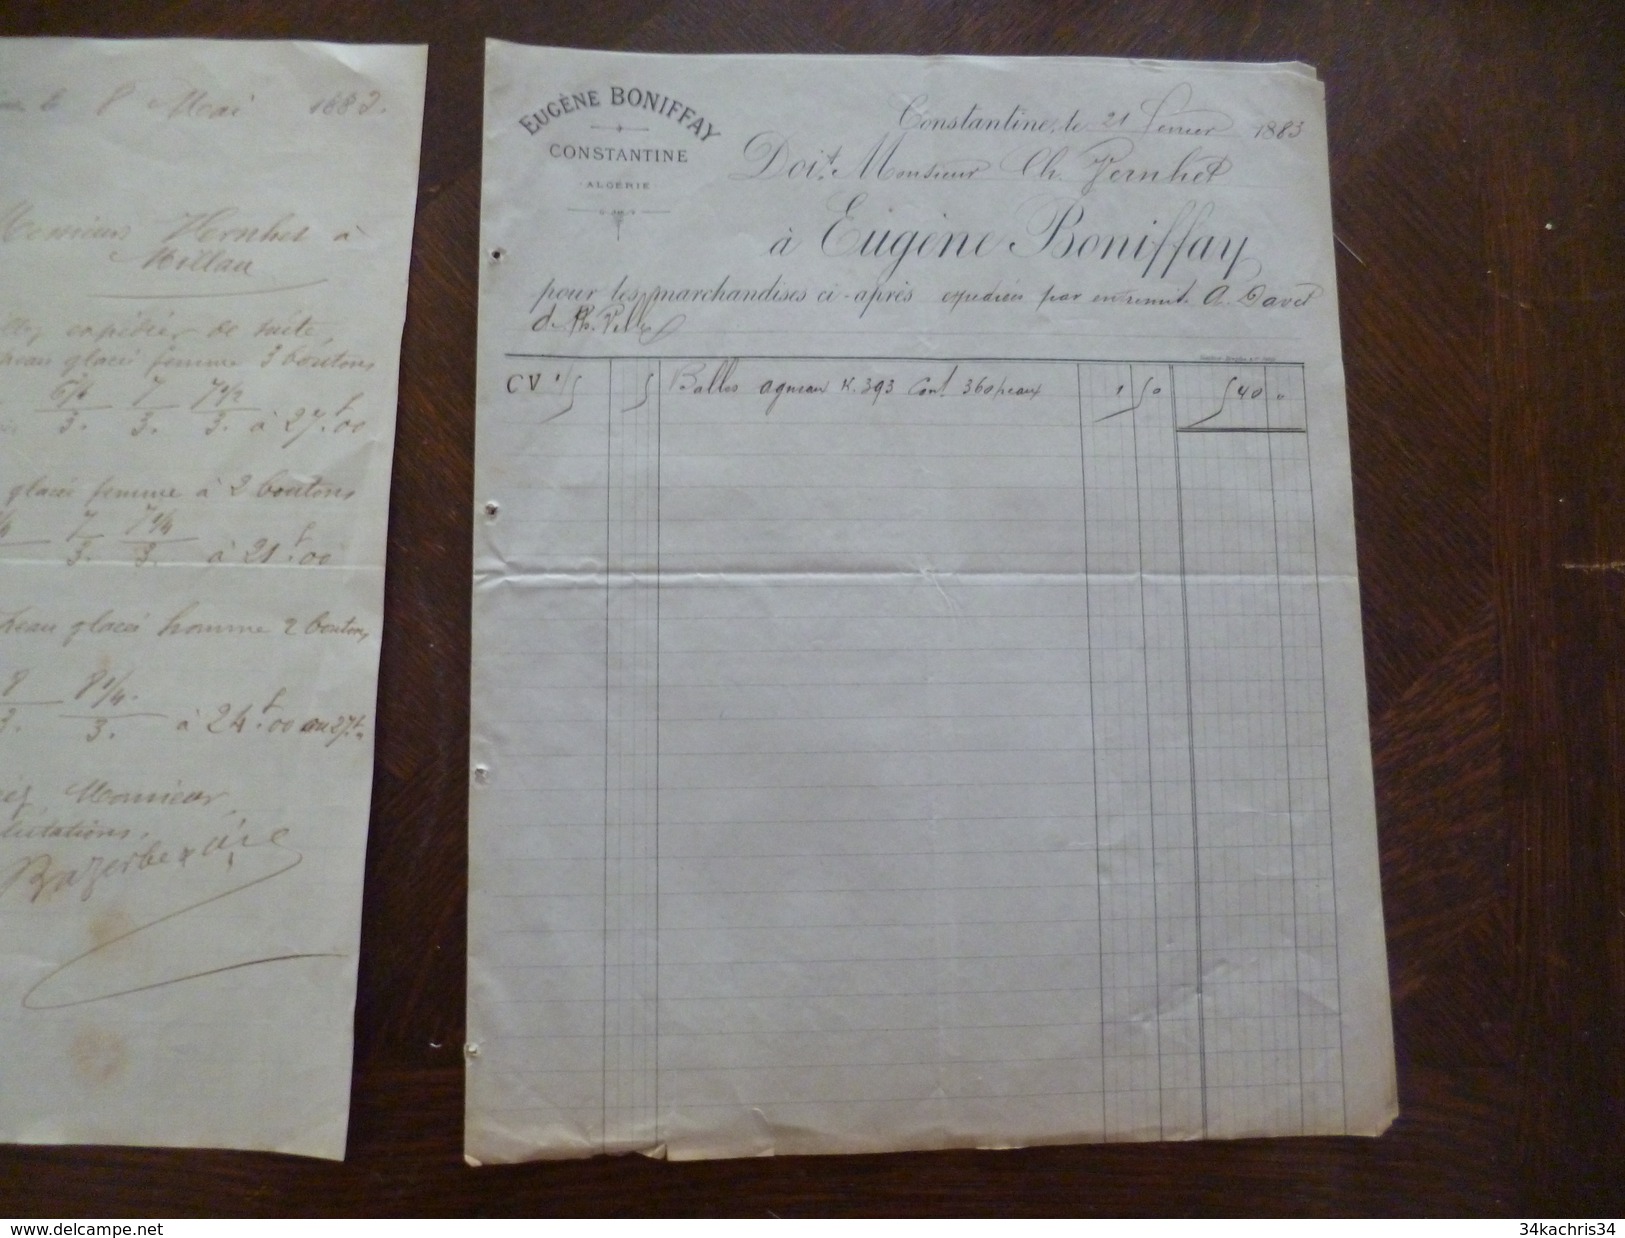 8 Mai 1883.
Monsieur Vernhet à
Millau
expédier de suite
peau glacé femme 3 boutons
6 3/4 7 7 1/2
3. 3. 3. à 27f.00
glacé femme à 2 boutons
7 7 1/4
3. 3. à 21f.00
peau glacé homme 2 boutons
8 8 1/4.
3. 3. à 24f.00 ou 27f.
Monsieur
lutations.
EUGÈNE BONIFFAY
CONSTANTINE
ALGÉRIE
Constantine, le 21 février 1883
Doit Monsieur Ch. Vernhet
à Eugène Boniffay
pour les marchandises ci-après expédiées par entremise A. David
de Ph.
CV 1/5 5 Balles agneau K. 393 Cont 360 peaux 1 50 540 "
www.delcampe.net
34kachris34